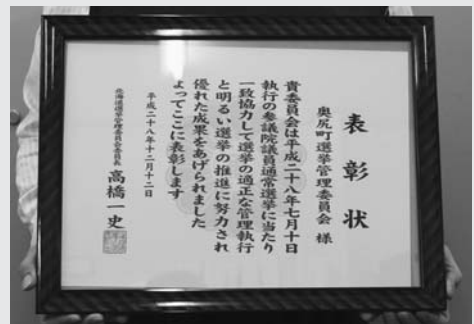 表彰状
奥尻町選挙管理委員会 様
貴委員会は平成二十八年七月十日
執行の参議院議員通常選挙に当たり
一致協力して選挙の適正な管理執行
と明るい選挙の推進に努力され
優れた成果をあげられました
よってここに表彰します
平成二十八年十二月十二日
北海道選挙管理委員会委員長 高橋一史